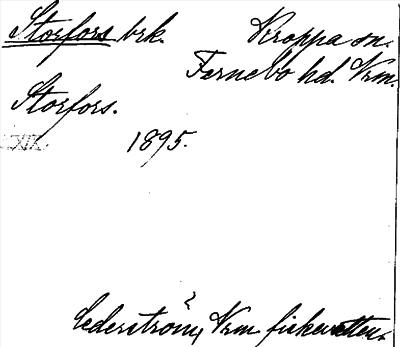 Storfors brk. Kroppa sn.
Fernebo hd. Vrm.
Storfors.
XIX. 1895.
Cederström, Vrm fiskevatten.